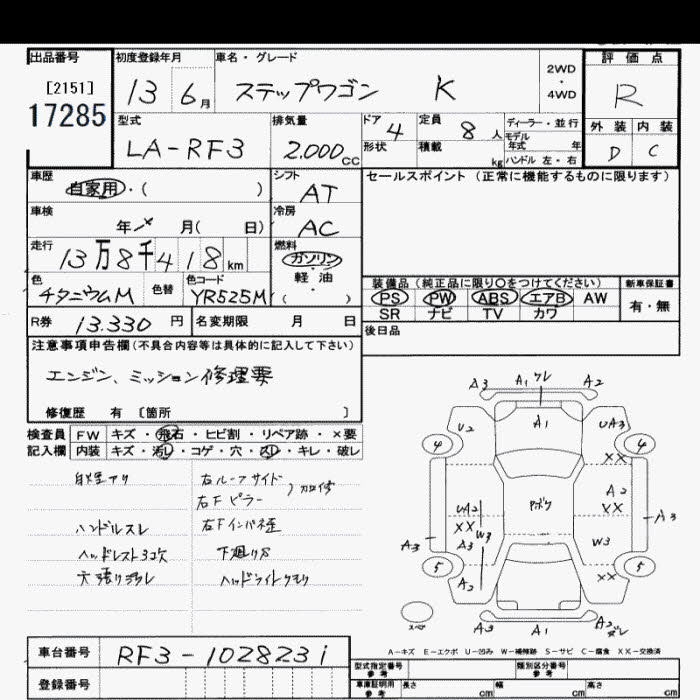 出品番号 初度登録年月 車名・グレード 評価点
[2151] 13 6月 ステップワゴン K 2WD・4WD R
17285
型式 排気量 ドア 定員 ディーラー・並行 外装 内装
LA-RF3 2.000cc 4 8人 モデル年式 年 D C
形状 積載 kg ハンドル 左・右
車歴 シフト セールスポイント (正常に機能するものに限ります)
自家用・( ) AT
車検 冷房
年 月( 日) AC
走行 燃料
13万8千418km ガソリン・軽油
装備品 (純正品に限り○をつけてください) 新車保証書
色 色替 色コード ( )
チタニウムM YR525M PS PW ABS エアB AW 有・無
SR ナビ TV カワ
R券 13.330円 名変期限 月 日 後日品
注意事項申告欄(不具合内容等は具体的に記入して下さい)
エンジン、ミッション修理要
修復歴 有 〔箇所 〕
検査員 FW キズ・飛石・ヒビ割・リペア跡・×要
記入欄 内装 キズ・汚レ・コゲ・穴・スレ・キレ・破レ
右ルーフサイド
右Fピラー
ハンドルスレ 右Fインパネ歪
ヘッドレスト3コ欠 下廻りサビ
天張り汚レ ヘッドライトクモリ
A3 A1 ワレ A2
U2 A1 UA3
4 4
XX
A2
UA2 Pボケ XX
XX W3 A3
A3 A3 W3
5 5
A2 XX
スペア
A3 A1 A2
A-キズ E-エクボ U-凹み W-補修跡 S-サビ C-腐食 XX-交換済
車台番号 RF3-1028231
型式指定番号 参考 類別区分番号 参考
登録番号
車庫証明用 参考 長さ cm 幅 cm 高さ cm